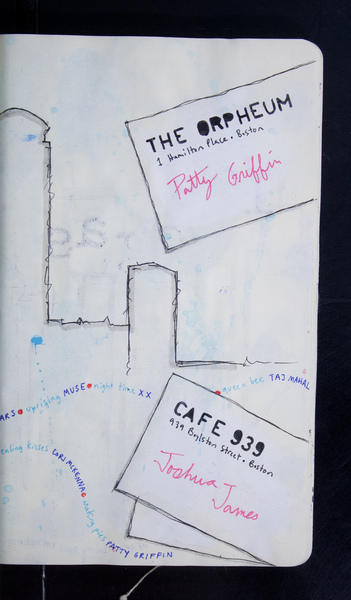 THE ORPHEUM
1 Hamilton Place. Boston
Patty Griffin
ARS uprising MUSE night time XX
queen bee TAJ MAHAL
CAFE 939
939 Boylston Street. Boston
Joshua
James
kisses LORI MCKENNA making pies PATTY GRIFFIN